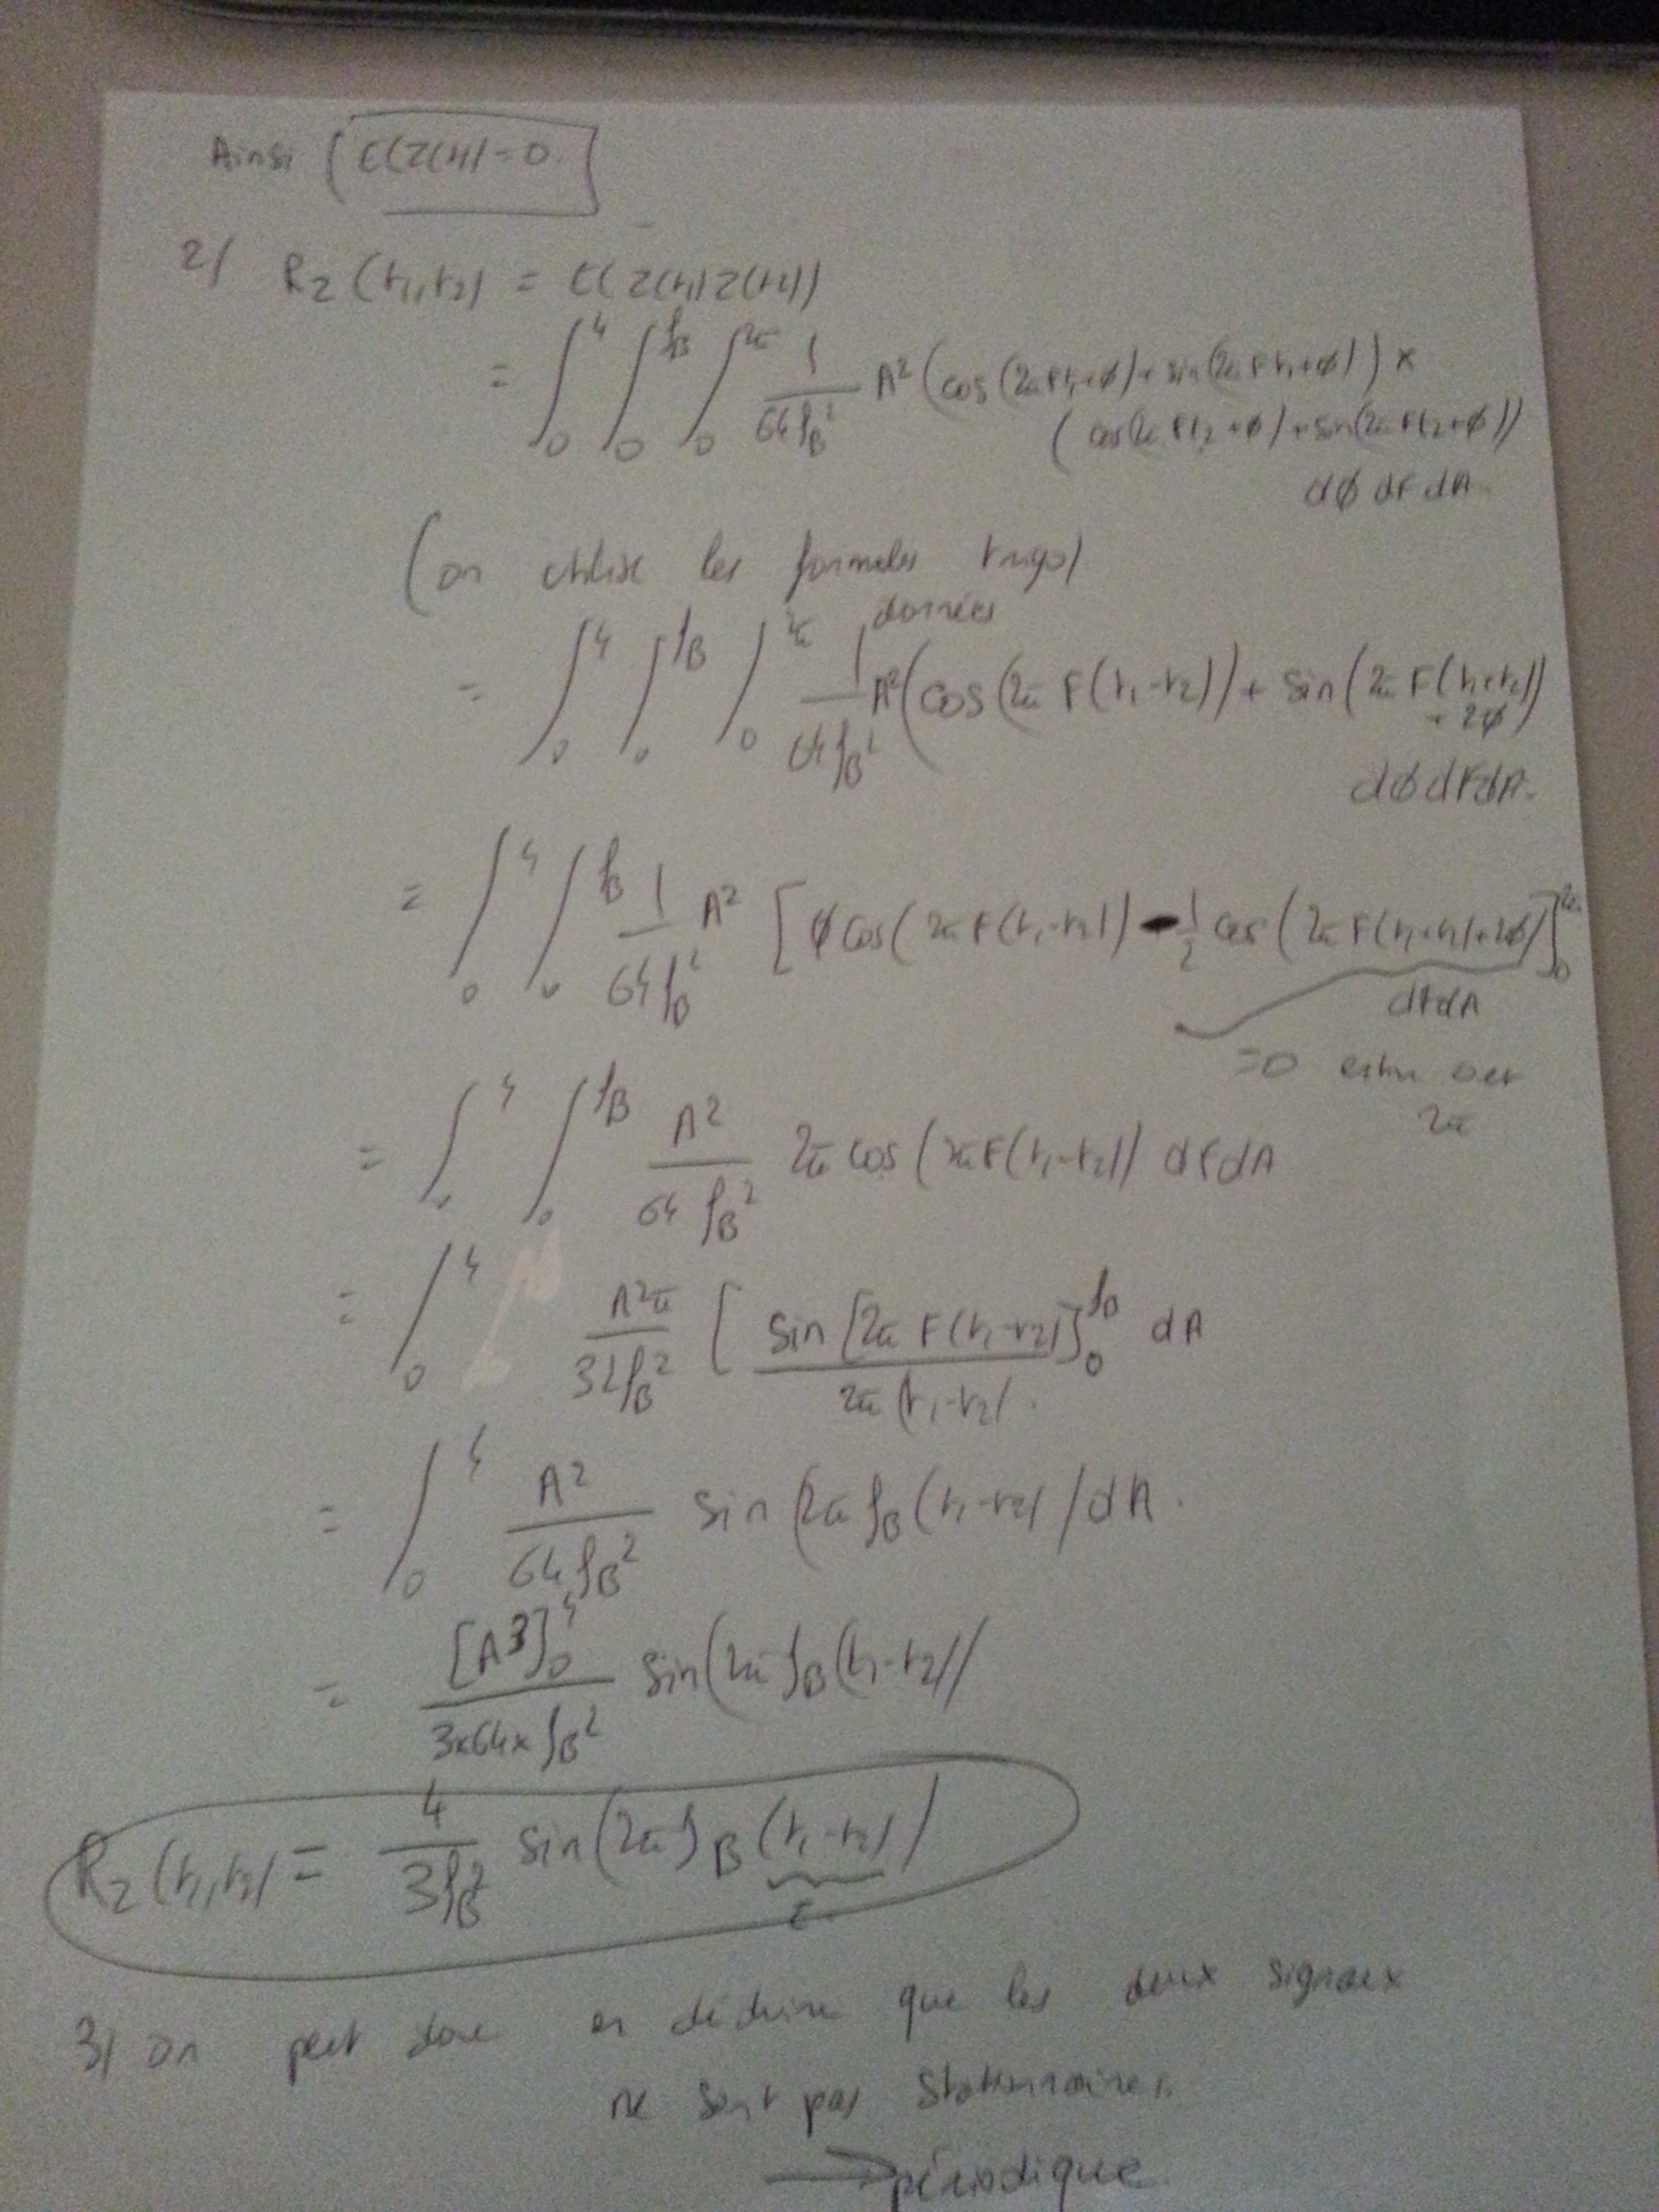 Ainsi E(Z(t)) = 0
2/ R_Z(t₁,t₂) = E(Z(t₁)Z(t₂))
= ∫₀⁴ ∫₀^{f_B} ∫₀^{2π} 1/(64 f_B²) A² (cos(2πFt₁+ϕ)+sin(2πFt₁+ϕ)) ×
(cos(2πFt₂+ϕ)+sin(2πFt₂+ϕ))
dϕ dF dA
(on utilise les formules trigo)
données
= ∫₀⁴ ∫₀^{f_B} ∫₀^{2π} 1/(64 f_B²) A² (cos(2π F(t₁-t₂)) + sin(2π F(t₁+t₂)
+ 2ϕ)
dϕ dF dA.
= ∫₀⁴ ∫₀^{f_B} 1/(64 f_B²) A² [ϕ cos(2πF(t₁-t₂)) - 1/2 cos(2πF(t₁+t₂)+2ϕ)]₀^{2π}
dFdA
= 0 entre 0 et
2π
= ∫₀⁴ ∫₀^{f_B} A²/(64 f_B²) 2π cos(2πF(t₁-t₂)) dF dA
= ∫₀⁴ A²π/(32 f_B²) [sin[2π F(t₁-t₂)]/(2π(t₁-t₂)]₀^{f_B} dA
= ∫₀⁴ A²/(64 f_B²) sin(2π f_B(t₁-t₂)) dA.
= [A³]₀⁴/(3x64x f_B²) sin(2π f_B(t₁-t₂))
R_Z(t₁,t₂) = 4/(3f_B²) sin(2π f_B (t₁-t₂))
3/ On peut donc en déduire que les deux signaux
ne sont pas stationnaires.
→ périodique